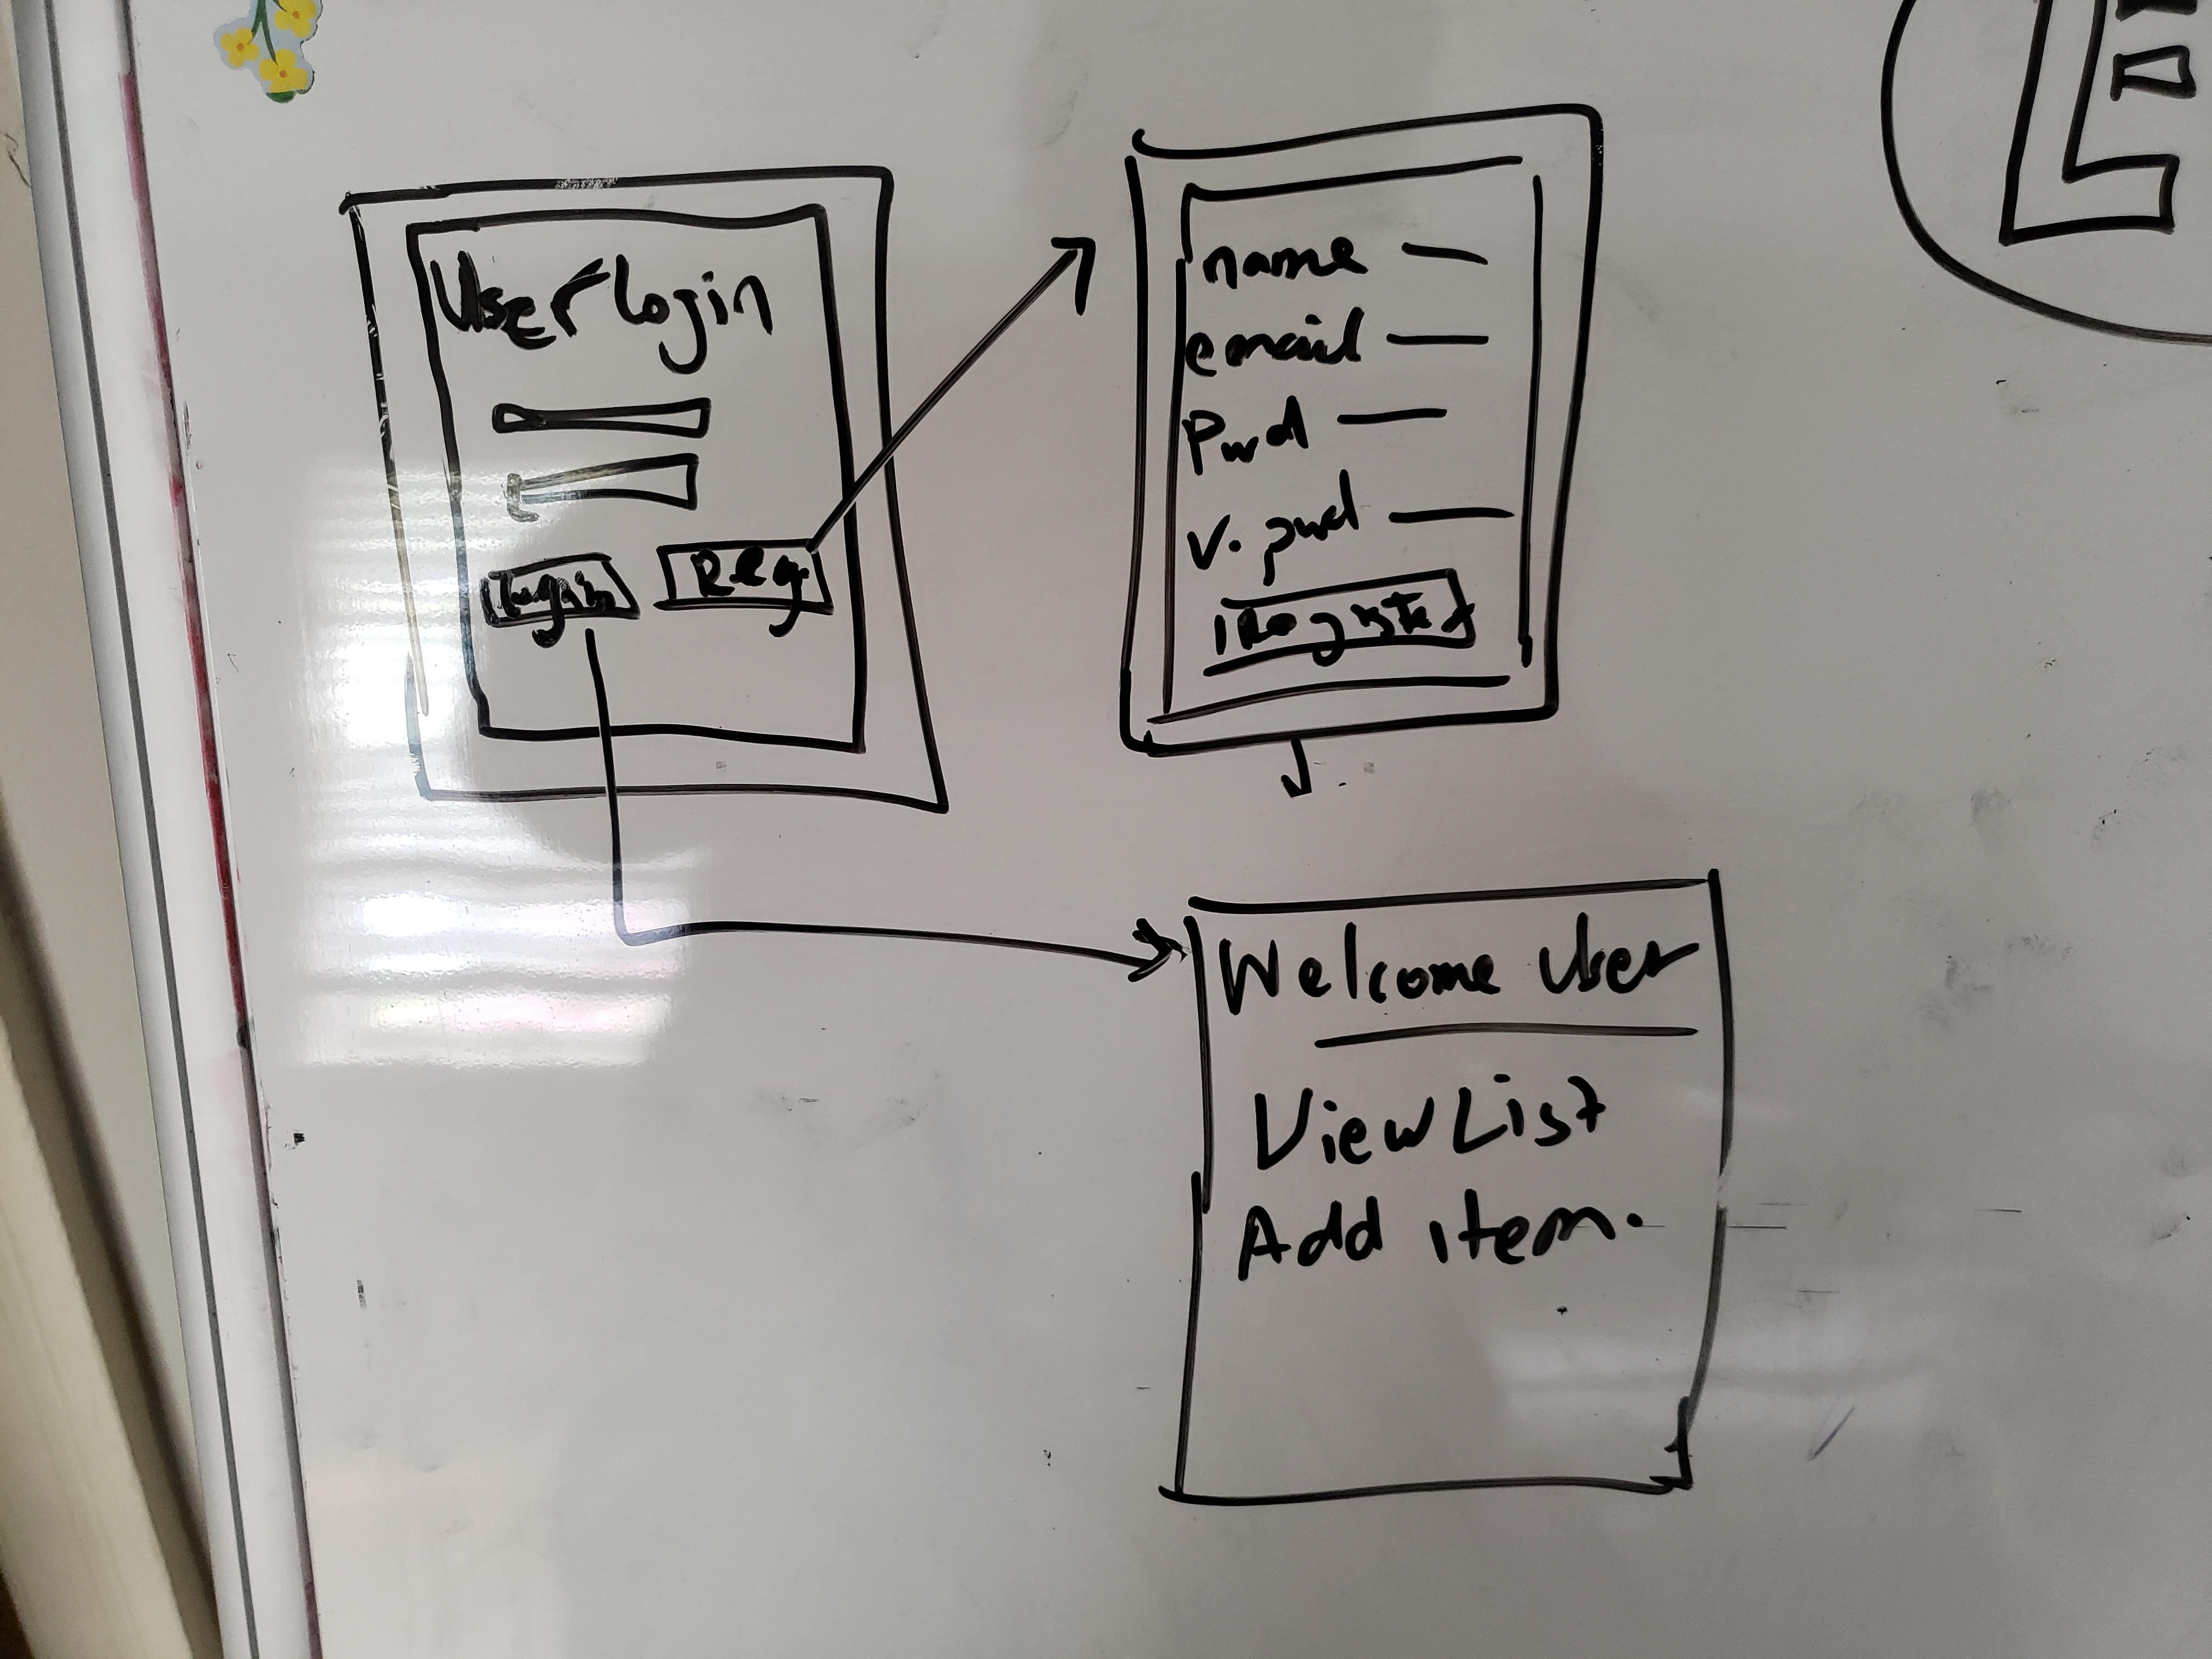 User login
login
Reg.
name
email
Pwd
v. pwd
Register
Welcome User
View List
Add item.